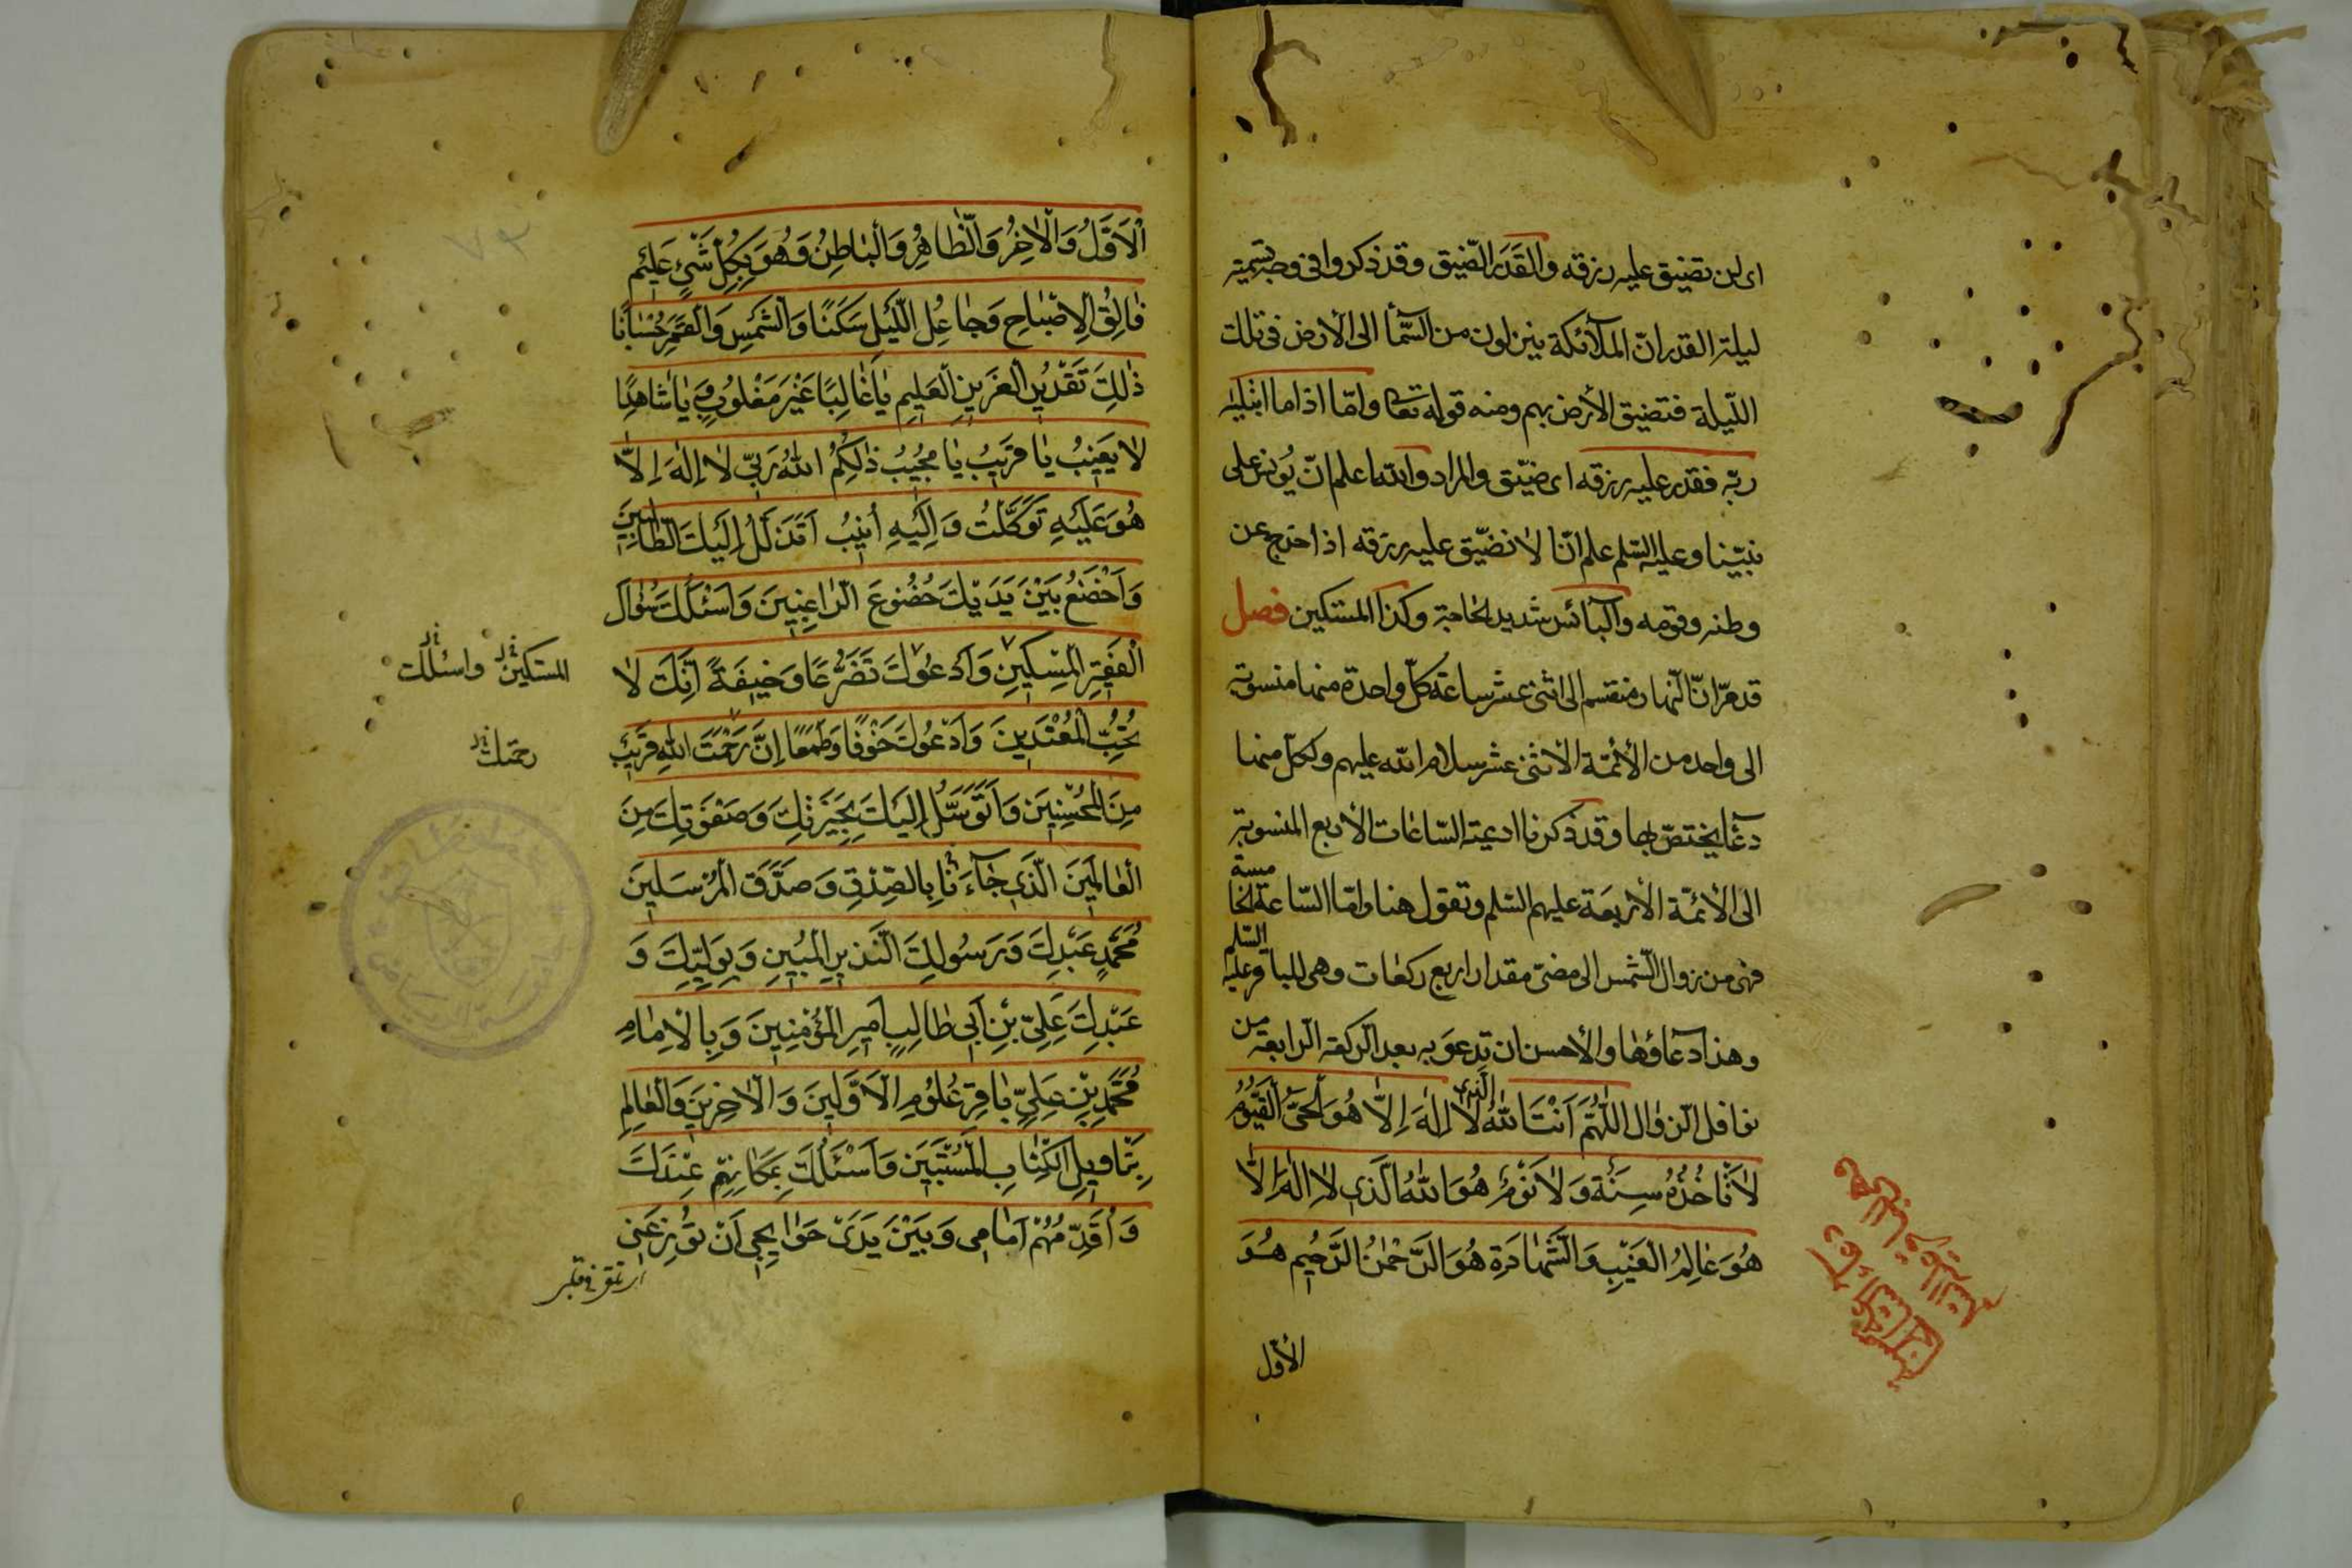 اى لن تضيق عليه رزقه والقدر الضّيق وقد ذكروا فى وجه تسمية
ليلة القدر انّ الملآئكة ينزلون من السّمآء الى الأرض فى تلك
اللّيلة فتضيق الأرض بهم ومنه قوله تعالى وامّا اذا ما ابتليه
ربّه فقدر عليه رزقه اى ضيّق والمراد والله اعلم انّ يونس على
نبيّنا وعليه السّلم علم انّا لا نضيّق عليه رزقه اذا خرج عن
وطنه وقومه والبآئس شديد الحاجة وكذا المستكين فصل
قد مرّ انّ النّهار منقسم الى اثنى عشر ساعة كلّ واحدة منها منسوبة
الى واحد من الأئمّة الاثنى عشر سلام الله عليهم ولكلّ منها
دعآء يختصّ بها وقد ذكرنا ادعية السّاعات الأربع المنسوبة
الى الأئمّة الأربعة عليهم السّلم ونقول هنا وامّا السّاعة الخامسة
فهى من زوال الشّمس الى مضىّ مقدار اربع ركعات وهى للباقر عليه السّلم
وهذا دعاؤها والأحسن ان تدعو به بعد الركعة الرّابعة من
نوافل الزّوال اَللّٰهُمَّ اَنْتَ اللهُ الَّذى لاٰ اِلٰهَ اِلاّٰ هُوَ الْحَىُّ الْقَيُّومُ
لاٰ تَأْخُذُهُ سِنَةٌ وَلاٰ نَوْمٌ هُوَ اللهُ الَّذى لاٰ اِلٰهَ اِلاّٰ
هُوَ عٰالِمُ الْغَيْبِ وَالشَّهٰادَةِ هُوَ الرَّحْمٰنُ الرَّحيمُ هُوَ
الأوّل
اَلْاَوَّلُ وَالْاٰخِرُ وَالظّٰاهِرُ وَالْبٰاطِنُ وَهُوَ بِكُلِّ شَىْءٍ عَليمٌ
فٰالِقُ الْاِصْبٰاحِ وَجٰاعِلُ اللَّيْلِ سَكَنًا وَالشَّمْسِ وَالْقَمَرِ حُسْبٰانًا
ذٰلِكَ تَقْديرُ الْعَزيزِ الْعَليمِ يٰا غٰالِبًا غَيْرَ مَغْلُوبٍ وَيٰا شٰاهِدًا
لاٰ يَغيبُ يٰا قَريبُ يٰا مُجيبُ ذٰلِكُمُ اللهُ رَبّى لاٰ اِلٰهَ اِلاّٰ
هُوَ عَلَيْهِ تَوَكَّلْتُ وَاِلَيْهِ اُنيبُ اَتَذَلَّلُ اِلَيْكَ تَذَلُّلَ الطّٰالِبينَ
وَاَخْضَعُ بَيْنَ يَدَيْكَ خُضُوعَ الرّٰاغِبينَ وَاَسْئَلُكَ سُؤٰالَ
الْفَقيرِ الْمِسْكينِ وَاَدْعُوكَ تَضَرُّعًا وَخيفَةً اِنَّكَ لاٰ
المستكين واسئلك
تُحِبُّ الْمُعْتَدينَ وَاَدْعُوكَ خَوْفًا وَطَمَعًا اِنَّ رَحْمَتَ اللهِ قَريبٌ
رحمتك
مِنَ الْمُحْسِنينَ وَاَتَوَسَّلُ اِلَيْكَ بِخِيَرَتِكَ وَصَفْوَتِكَ مِنَ
الْعٰالَمينَ الَّذى جٰآءَ بِالصِّدْقِ وَصَدَّقَ الْمُرْسَلينَ
مُحَمَّدٍ عَبْدِكَ وَرَسُولِكَ النَّذيرِ الْمُبينِ وَبِوَلِيِّكَ وَ
عَبْدِكَ عَلِىِّ بْنِ اَبى طٰالِبٍ اَميرِ الْمُؤْمِنينَ وَبِالْاِمٰامِ
مُحَمَّدِ بْنِ عَلِىٍّ بٰاقِرِ عُلُومِ الْاَوَّلينَ وَالْاٰخِرينَ وَالْعٰالِمِ
بِتَاْويلِ الْكِتٰابِ الْمُسْتَبينِ وَاَسْئَلُكَ بِمَكٰانِهِمْ عِنْدَكَ
وَاُقَدِّمُهُمْ اَمٰامى وَبَيْنَ يَدَىْ حَوٰائِجى اَنْ تُوزِعَنى